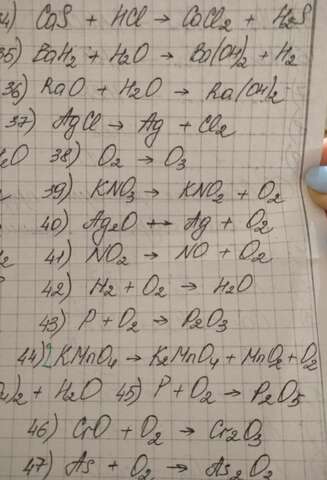 34) CaS + HCl → CaCl2 + H2S
35) BaH2 + H2O → Ba(OH)2 + H2
36) RaO + H2O → Ra(OH)2
37) AgCl → Ag + Cl2
38) O2 → O3
39) KNO3 → KNO2 + O2
40) Ag2O → Ag + O2
41) NO2 → NO + O2
42) H2 + O2 → H2O
43) P + O2 → P2O3
44) 2KMnO4 → K2MnO4 + MnO2 + O2
)2 + H2O 45) P + O2 → P2O5
46) CrO + O2 → Cr2O3
47) As + O2 → As2O3